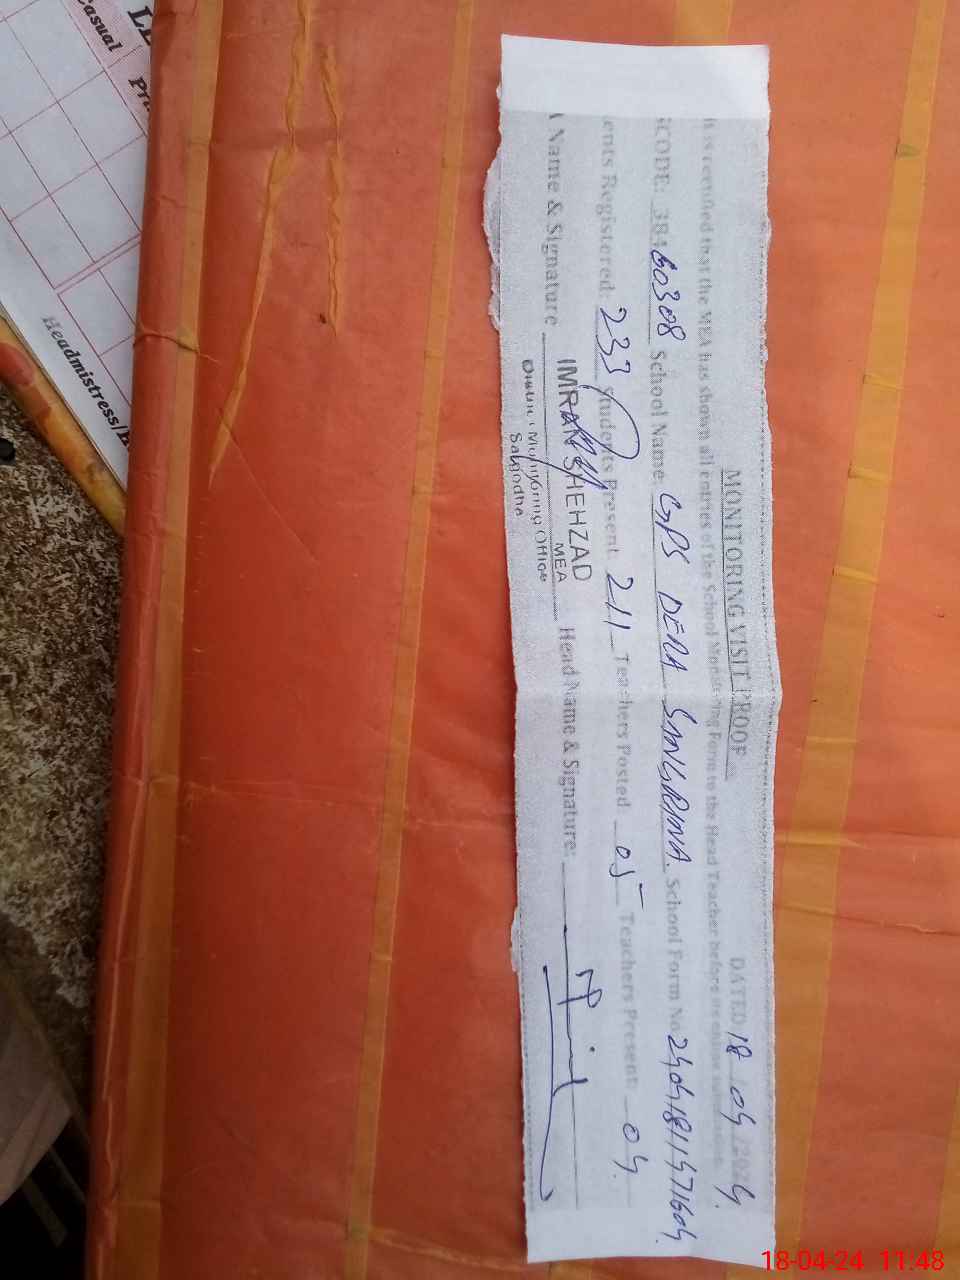 MONITORING VISIT PROOF
DATED 18/04/2024.
It is certified that the MEA has shown all entries of the School Monitoring Form to the Head Teacher before its online submission.
SCODE: 38460308 School Name: GPS DERA School Form No.
ents Registered: 233 Students Present: 211 Teachers Posted 05 Teachers Present: 04
A Name & Signature Head Name & Signature:
IMRAN SHEHZAD
MEA
District Monitoring Office
Sargodha
Casual
Headmistress/
18-04-24 11:48